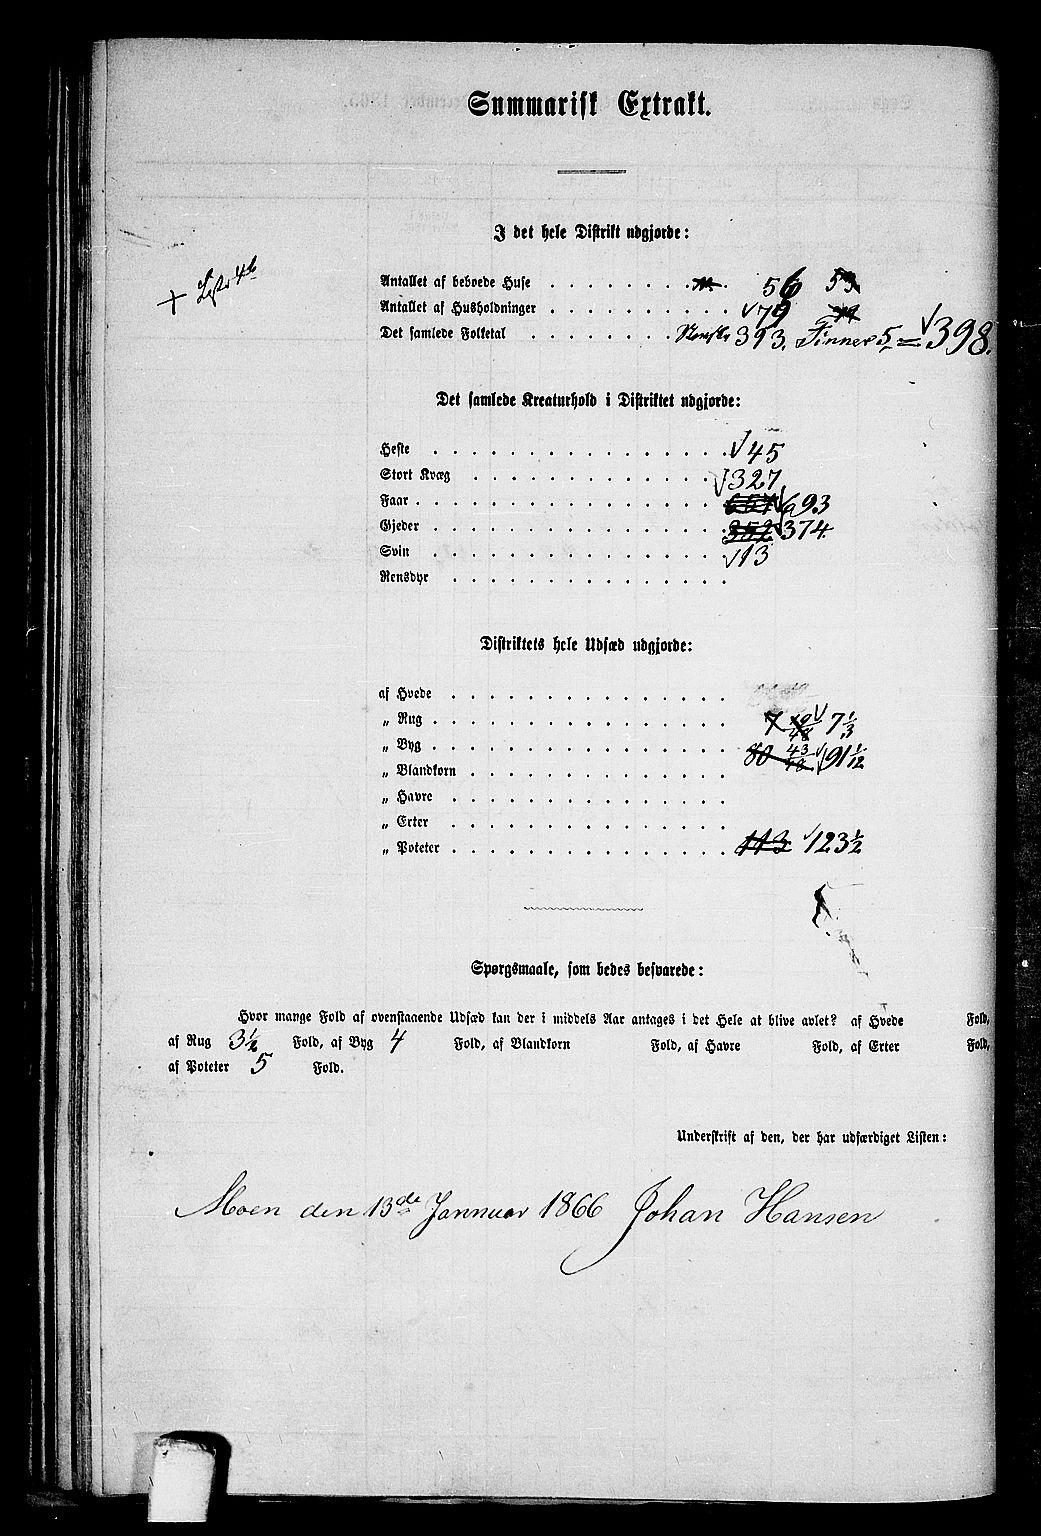 Summarisk Extrakt.
I det hele Distrikt udgjorde:
Antallet af beboede Huse 56 53
Antallet af Husholdninger 79
Det samlede Folketal Norske 393. Finner 5 = 398.
Det samlede Kreaturhold i Distriktet udgjorde:
Heste 45
Stort Kvæg 327
Faar 657 693
Gjeder 352 374
Sviin 13
Rensdyr
Distriktets hele Udsæd udgjorde:
af Hvede
„ Rug 7 7 1/3
„ Byg 80 43/48 91 1/12
„ Blandkorn
„ Havre
„ Erter
„ Poteter 113 123 1/2
Spørgsmaale, som bedes besvarede:
Hvor mange Fold af ovenstaaende Udsæd kan der i middels Aar antages i det Hele at blive avlet? af Hvede Fold,
af Rug 3 1/2 Fold, af Byg 4 Fold, af Blandkorn Fold, af Havre Fold, af Erter Fold,
af Poteter 5 Fold.
Underskrift af den, der har udfærdiget Listen:
Moen den 13de Januar 1866 Johan Hansen